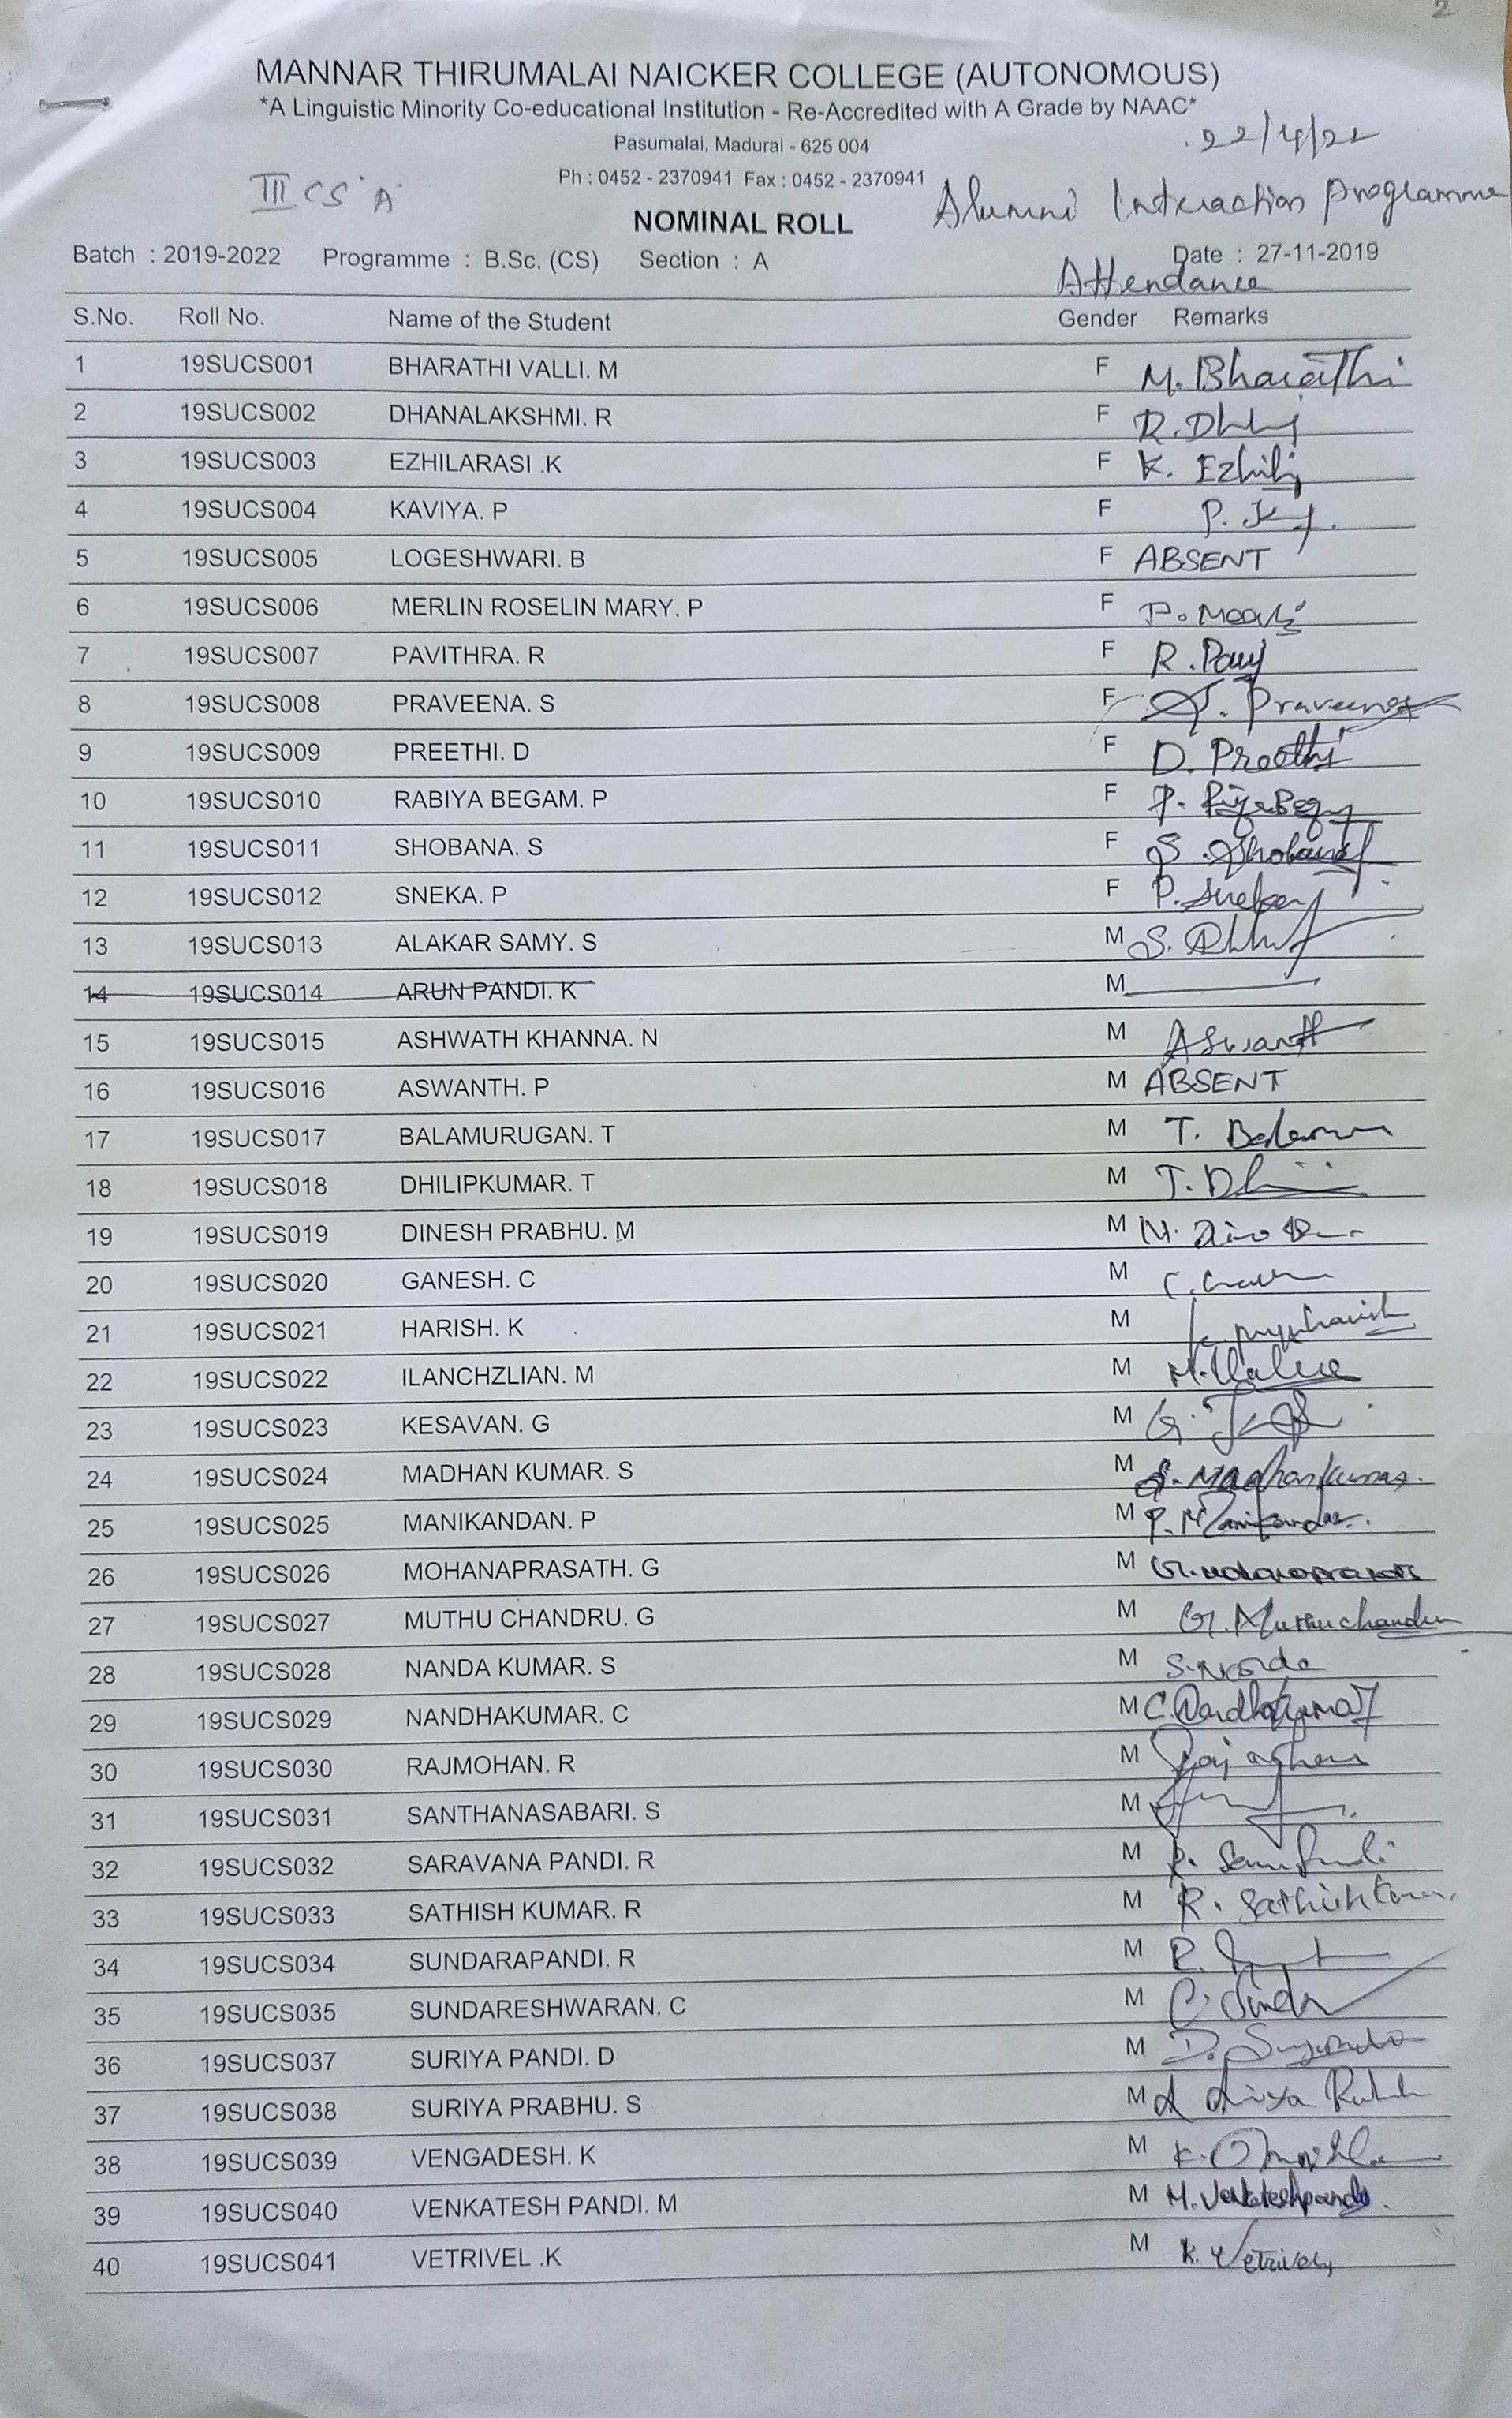 2
MANNAR THIRUMALAI NAICKER COLLEGE (AUTONOMOUS)
*A Linguistic Minority Co-educational Institution - Re-Accredited with A Grade by NAAC*
Pasumalai, Madurai - 625 004
22/4/22
Ph : 0452 - 2370941 Fax : 0452 - 2370941
III CS 'A'
Alumni Interaction Programme
NOMINAL ROLL
Batch : 2019-2022 Programme : B.Sc. (CS) Section : A Date : 27-11-2019
Attendance
S.No. Roll No. Name of the Student Gender Remarks
1 19SUCS001 BHARATHI VALLI. M F M. Bharathi
2 19SUCS002 DHANALAKSHMI. R F
3 19SUCS003 EZHILARASI .K F K. Ezhil
4 19SUCS004 KAVIYA. P F
5 19SUCS005 LOGESHWARI. B F ABSENT
6 19SUCS006 MERLIN ROSELIN MARY. P F
7 19SUCS007 PAVITHRA. R F
8 19SUCS008 PRAVEENA. S F S. Praveena
9 19SUCS009 PREETHI. D F D. Preethi
10 19SUCS010 RABIYA BEGAM. P F
11 19SUCS011 SHOBANA. S F S. Shobana
12 19SUCS012 SNEKA. P F P. Sneka
13 19SUCS013 ALAKAR SAMY. S M
14 19SUCS014 ARUN PANDI. K M
15 19SUCS015 ASHWATH KHANNA. N M
16 19SUCS016 ASWANTH. P M ABSENT
17 19SUCS017 BALAMURUGAN. T M
18 19SUCS018 DHILIPKUMAR. T M
19 19SUCS019 DINESH PRABHU. M M
20 19SUCS020 GANESH. C M
21 19SUCS021 HARISH. K M
22 19SUCS022 ILANCHZLIAN. M M
23 19SUCS023 KESAVAN. G M
24 19SUCS024 MADHAN KUMAR. S M S. Madhankumar.
25 19SUCS025 MANIKANDAN. P M P. Manikandan.
26 19SUCS026 MOHANAPRASATH. G M
27 19SUCS027 MUTHU CHANDRU. G M G. Muthuchandru
28 19SUCS028 NANDA KUMAR. S M S. Nanda
29 19SUCS029 NANDHAKUMAR. C M C. Nandhakumar
30 19SUCS030 RAJMOHAN. R M
31 19SUCS031 SANTHANASABARI. S M
32 19SUCS032 SARAVANA PANDI. R M
33 19SUCS033 SATHISH KUMAR. R M R. Sathish Kumar.
34 19SUCS034 SUNDARAPANDI. R M
35 19SUCS035 SUNDARESHWARAN. C M
36 19SUCS037 SURIYA PANDI. D M
37 19SUCS038 SURIYA PRABHU. S M
38 19SUCS039 VENGADESH. K M
39 19SUCS040 VENKATESH PANDI. M M M. Venkateshpandi.
40 19SUCS041 VETRIVEL .K M K. Vetrivel